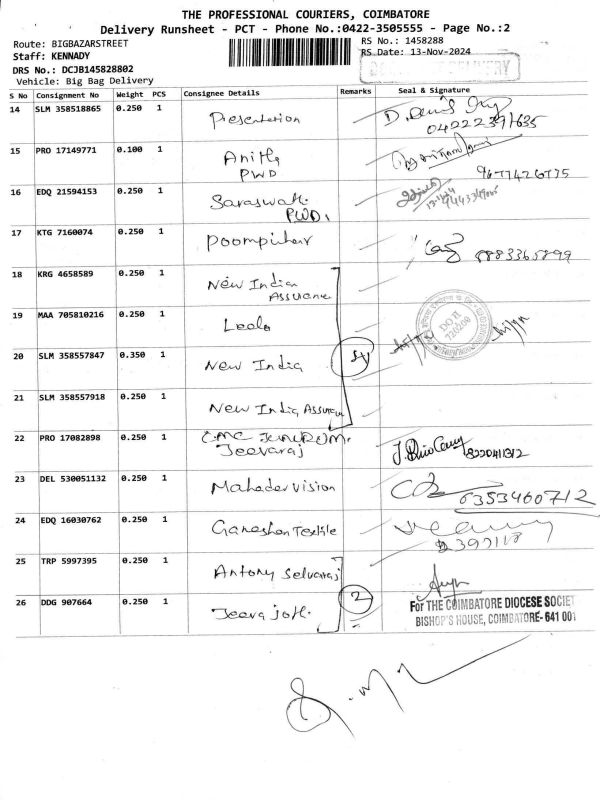 THE PROFESSIONAL COURIERS, COIMBATORE
Delivery Runsheet - PCT - Phone No.:0422-3505555 - Page No.:2
Route: BIGBAZARSTREET
RS No.: 1458288
Staff: KENNADY
RS Date: 13-Nov-2024
DRS No.: DCJB145828802
DELIVERY
Vehicle: Big Bag Delivery
S No Consignment No Weight PCS Consignee Details Remarks Seal & Signature
14 SLM 358518865 0.250 1 Presentation
15 PRO 17149771 0.100 1 Anitha
PWD
16 EDQ 21594153 0.250 1 Saraswati
PWD.
17 KTG 7160074 0.250 1 Poompuhar 8883365899
18 KRG 4658589 0.250 1 New India
Assurance
19 MAA 705810216 0.250 1 Leela
20 SLM 358557847 0.350 1 New India 4
21 SLM 358557918 0.250 1 New India Assurance
22 PRO 17082898 0.250 1
Jeevaraj
23 DEL 530051132 0.250 1 Mahadev Vision 6353460712
24 EDQ 16030762 0.250 1 Ganeshan Textile
25 TRP 5997395 0.250 1 Antony Selvaraj
26 DDG 907664 0.250 1 Jeeva Joth. 2
For THE COIMBATORE DIOCESE SOCIET
BISHOP'S HOUSE, COIMBATORE- 641 001